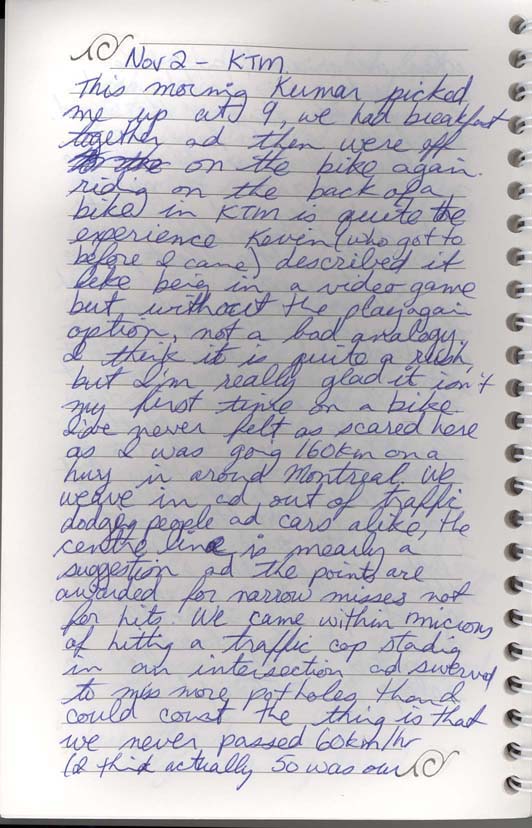 Nov 2 - KTM
This morning Kumar picked
me up at 9, we had breakfast
together ad then were off
on the bike again.
riding on the back of a
bike in KTM is quite the
experience Kevin (who got to
before I came) described it
like being in a video game
but without the play again
option, not a bad analogy.
I think it is quite a rush,
but I'm really glad it isn't
my first time on a bike.
I've never felt as scared here
as I was going 160km on a
hwy in around Montreal. We
weave in ad out of traffic
dodging people ad cars alike, the
centre line is mearly a
suggestion ad the points are
awarded for narrow misses not
for hits. We came within microns
of hitting a traffic cop standing
in an intersection ad swerved
to miss more potholes than I
could count the thing is that
we never passed 60km/hr
(I think actually 50 was our